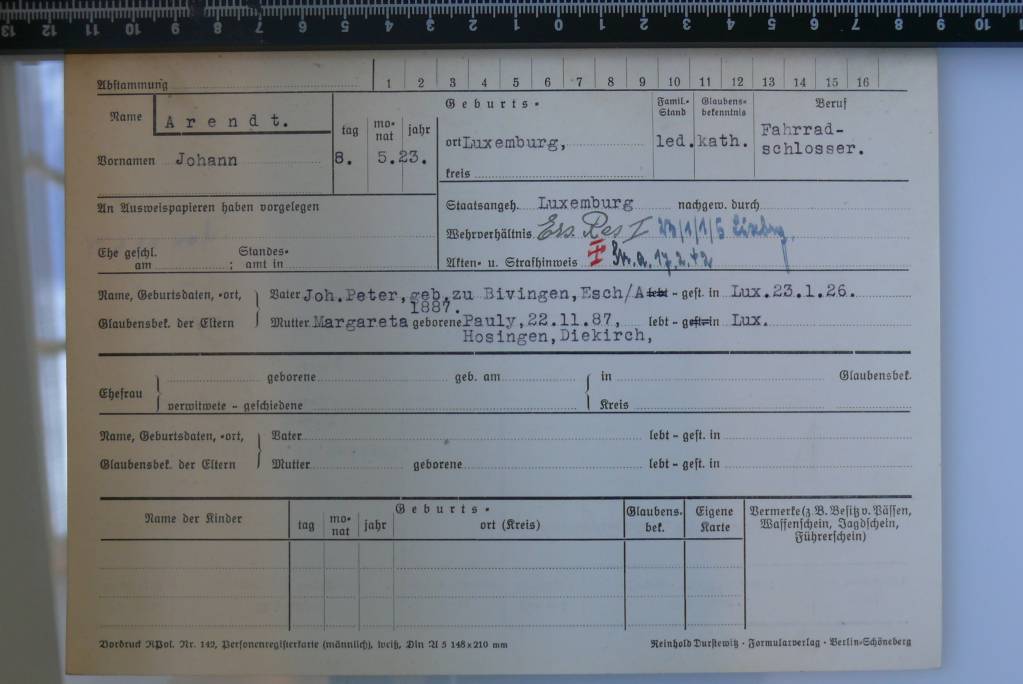 13 12 11 10 9 8 7 6 5 4 3 2 1 0 1 2 3 4 5 6 7 8 9 10
Abstammung 1 2 3 4 5 6 7 8 9 10 11 12 13 14 15 16
Name Arendt.
Vornamen Johann
tag monat jahr
8. 5.23.
Geburts-
ort Luxemburg,
kreis
Famil.-Stand
led.
Glaubens-bekenntnis
kath.
Beruf
Fahrrad-
schlosser.
An Ausweispapieren haben vorgelegen
Staatsangeh. Luxemburg nachgew. durch
Wehrverhältnis Ers. Res I
Ehe geschl. am ; Standes-amt in
Akten- u. Strafhinweis 17.2.42
Name, Geburtsdaten, -ort, Vater Joh.Peter, geb. zu Bivingen, Esch/A lebt - gest. in Lux.23.1.26.
1887.
Glaubensbek. der Eltern Mutter Margareta geborene Pauly,22.11.87, lebt - gest. in Lux.
Hosingen,Diekirch,
Ehefrau geborene geb. am in Glaubensbek.
verwitwete - geschiedene Kreis
Name, Geburtsdaten, -ort, Vater lebt - gest. in
Glaubensbek. der Eltern Mutter geborene lebt - gest. in
Name der Kinder
Geburts-
tag monat jahr ort (Kreis)
Glaubens-bek.
Eigene Karte
Vermerke (z. B. Besitz v. Pässen,
Waffenschein, Jagdschein,
Führerschein)
Vordruck RPol. Nr. 142, Personenregisterkarte (männlich), weiß, Din A 5 148 x 210 mm
Reinhold Durstewitz · Formularverlag · Berlin-Schöneberg